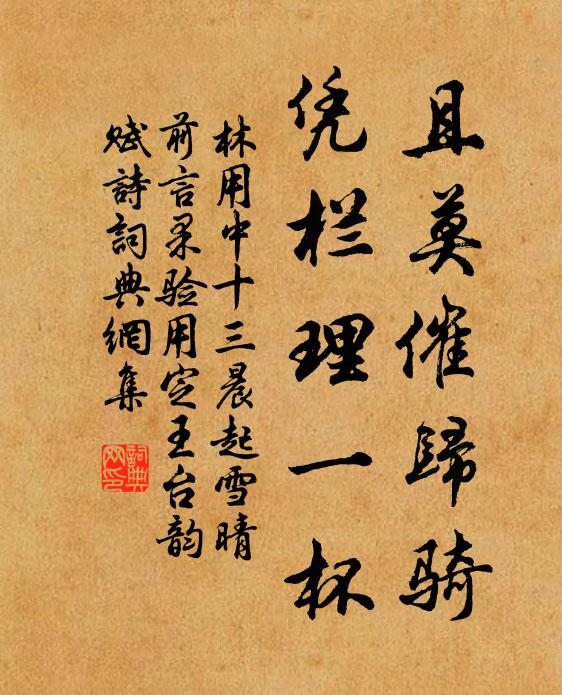 且莫催歸骑
凭栏理一杯
林用中十三晨起雪晴
前言果验用定王台韵
赋詩詞典網集
詞典網印